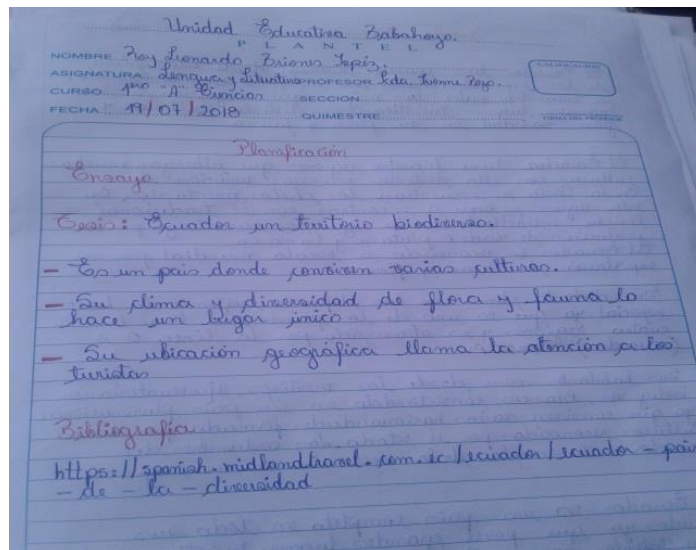 Unidad Educativa Babahoyo.
PLANTEL
NOMBRE Roy Leonardo Briones Yepiz.
ASIGNATURA Lengua y Literatura PROFESOR Lcda. Ivonne
CURSO 1ero "A" Ciencias SECCIÓN
FECHA 11/07/2018 QUIMESTRE
Planificación
Ensayo
Tesis: Ecuador un territorio biodiverso.
- Es un pais donde conviven varias culturas.
- Su clima y diversidad de flora y fauna lo
hace un lugar único
- Su ubicación geográfica llama la atención a los
turistas
Bibliografia
https://spanish.midlandtravel.com.ec/ecuador/ecuador-pais
-de-la-diversidad